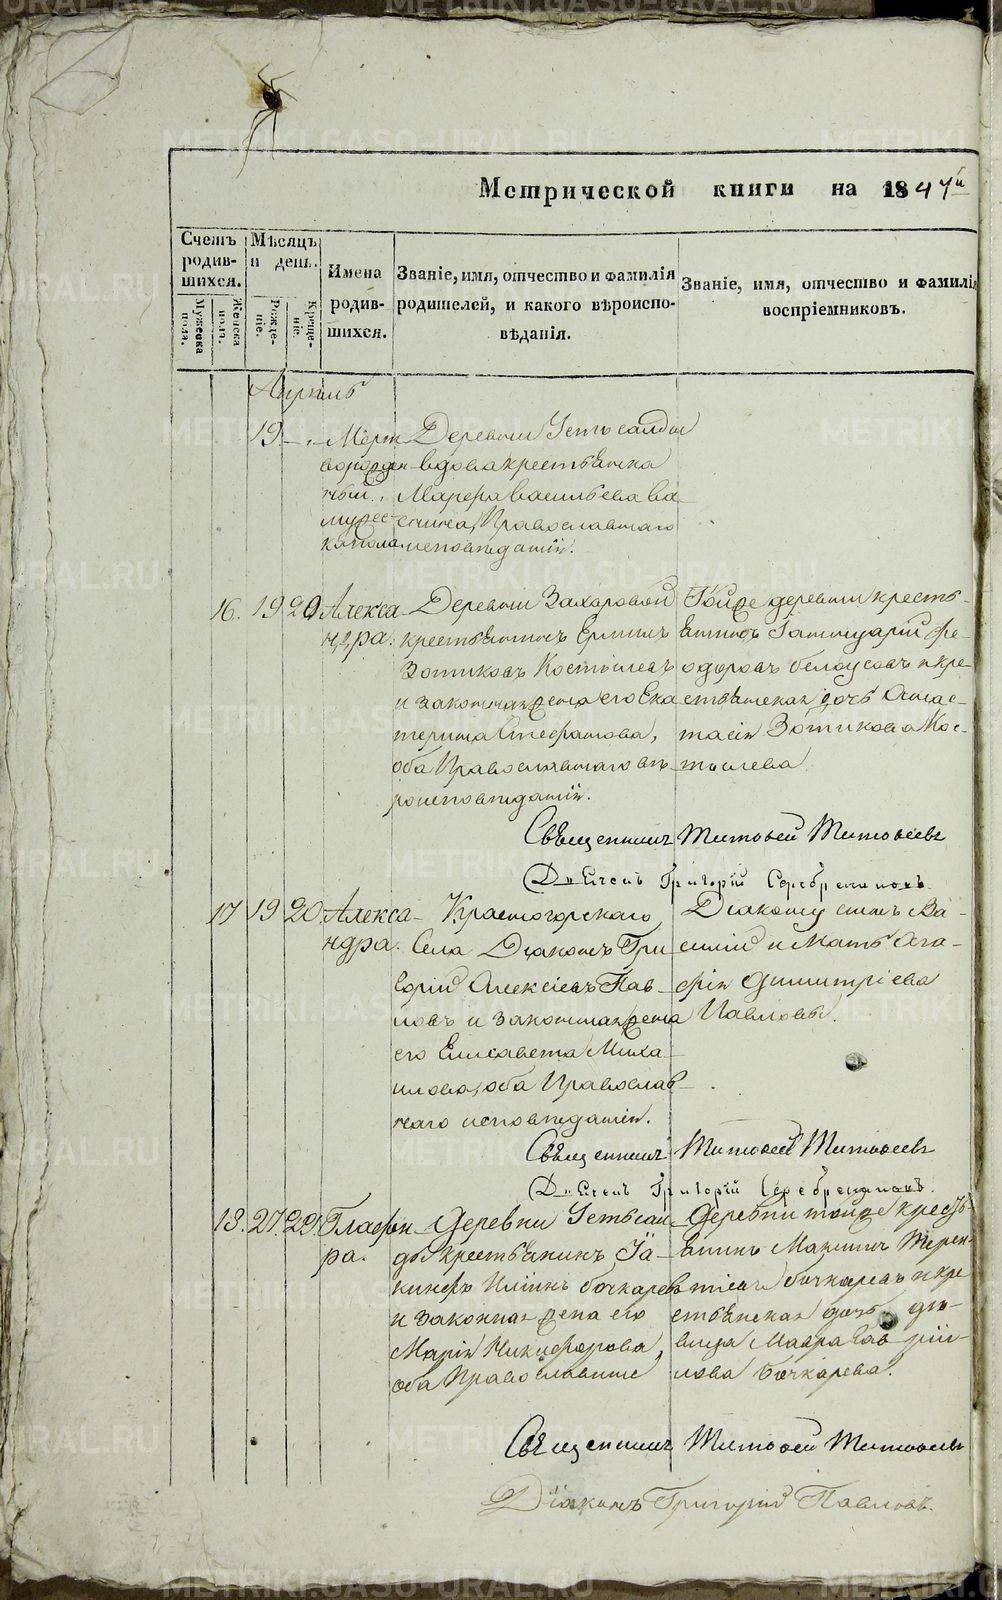 Метрической книги на 1847й
Счетъ родив-шихся.
Мужеска пола.
Женска пола.
Мѣсяцъ и день.
Рожде-ніе.
Креще-ніе.
Имена родив-шихся.
Званіе, имя, отчество и фамилія родителей, и какого вѣроиспо-вѣданія.
Званіе, имя, отчество и фамилія воспріемниковъ.
Апрель
19 Мертворожденный мужескаго пола
Деревни Устьсалды
вдова крестьянка
Марфа Васильева
Православнаго
исповеданія.
16. 19 20 Алекса
ндра.
Деревни Захаровой
крестьянинъ
Зотиковъ Костылевъ
и законная жена его Ека
терина Стефанова,
оба Православнаго вѣ
роисповеданія.
Тойже деревни кресть-
янинъ
одоровъ Белоусовъ и кре
стьянская дочь Анас-
тасія Зотикова Кос-
тылева.
Священникъ Матѳей Матѳеевъ
Дьячекъ Григорій Серебрениковъ
17 19 20 Алекса
ндра.
Красногорскаго
Села Діаконъ Гри
горій Алексіевъ Пав
ловъ и законная жена
его Елисавета Миха
илова, оба Православ
наго исповеданія.
Діакону сынъ Ва-
силій и мать Ага-
фія Димитріева
Павловы.
Священникъ Матѳей Матѳеевъ
Дьячекъ Григорій Серебрениковъ
18. 27. 29. Глафи
ра.
Деревни Устьсал
ды крестьянинъ Іа
кинфъ Илiинъ Бочкаревъ
и законная жена его
Марія Никифорова,
оба Православные
Деревни тойже кресть-
янинъ Максимъ Терен-
тіевъ Бочкаревъ и кре
стьянская дочь дѣ-
вица Мавра Гаврiи-
лова Бочкарева.
Священникъ Матѳей Матѳеевъ
Діаконъ Григорій Павловъ
METRIKI.GASO-URAL.RU